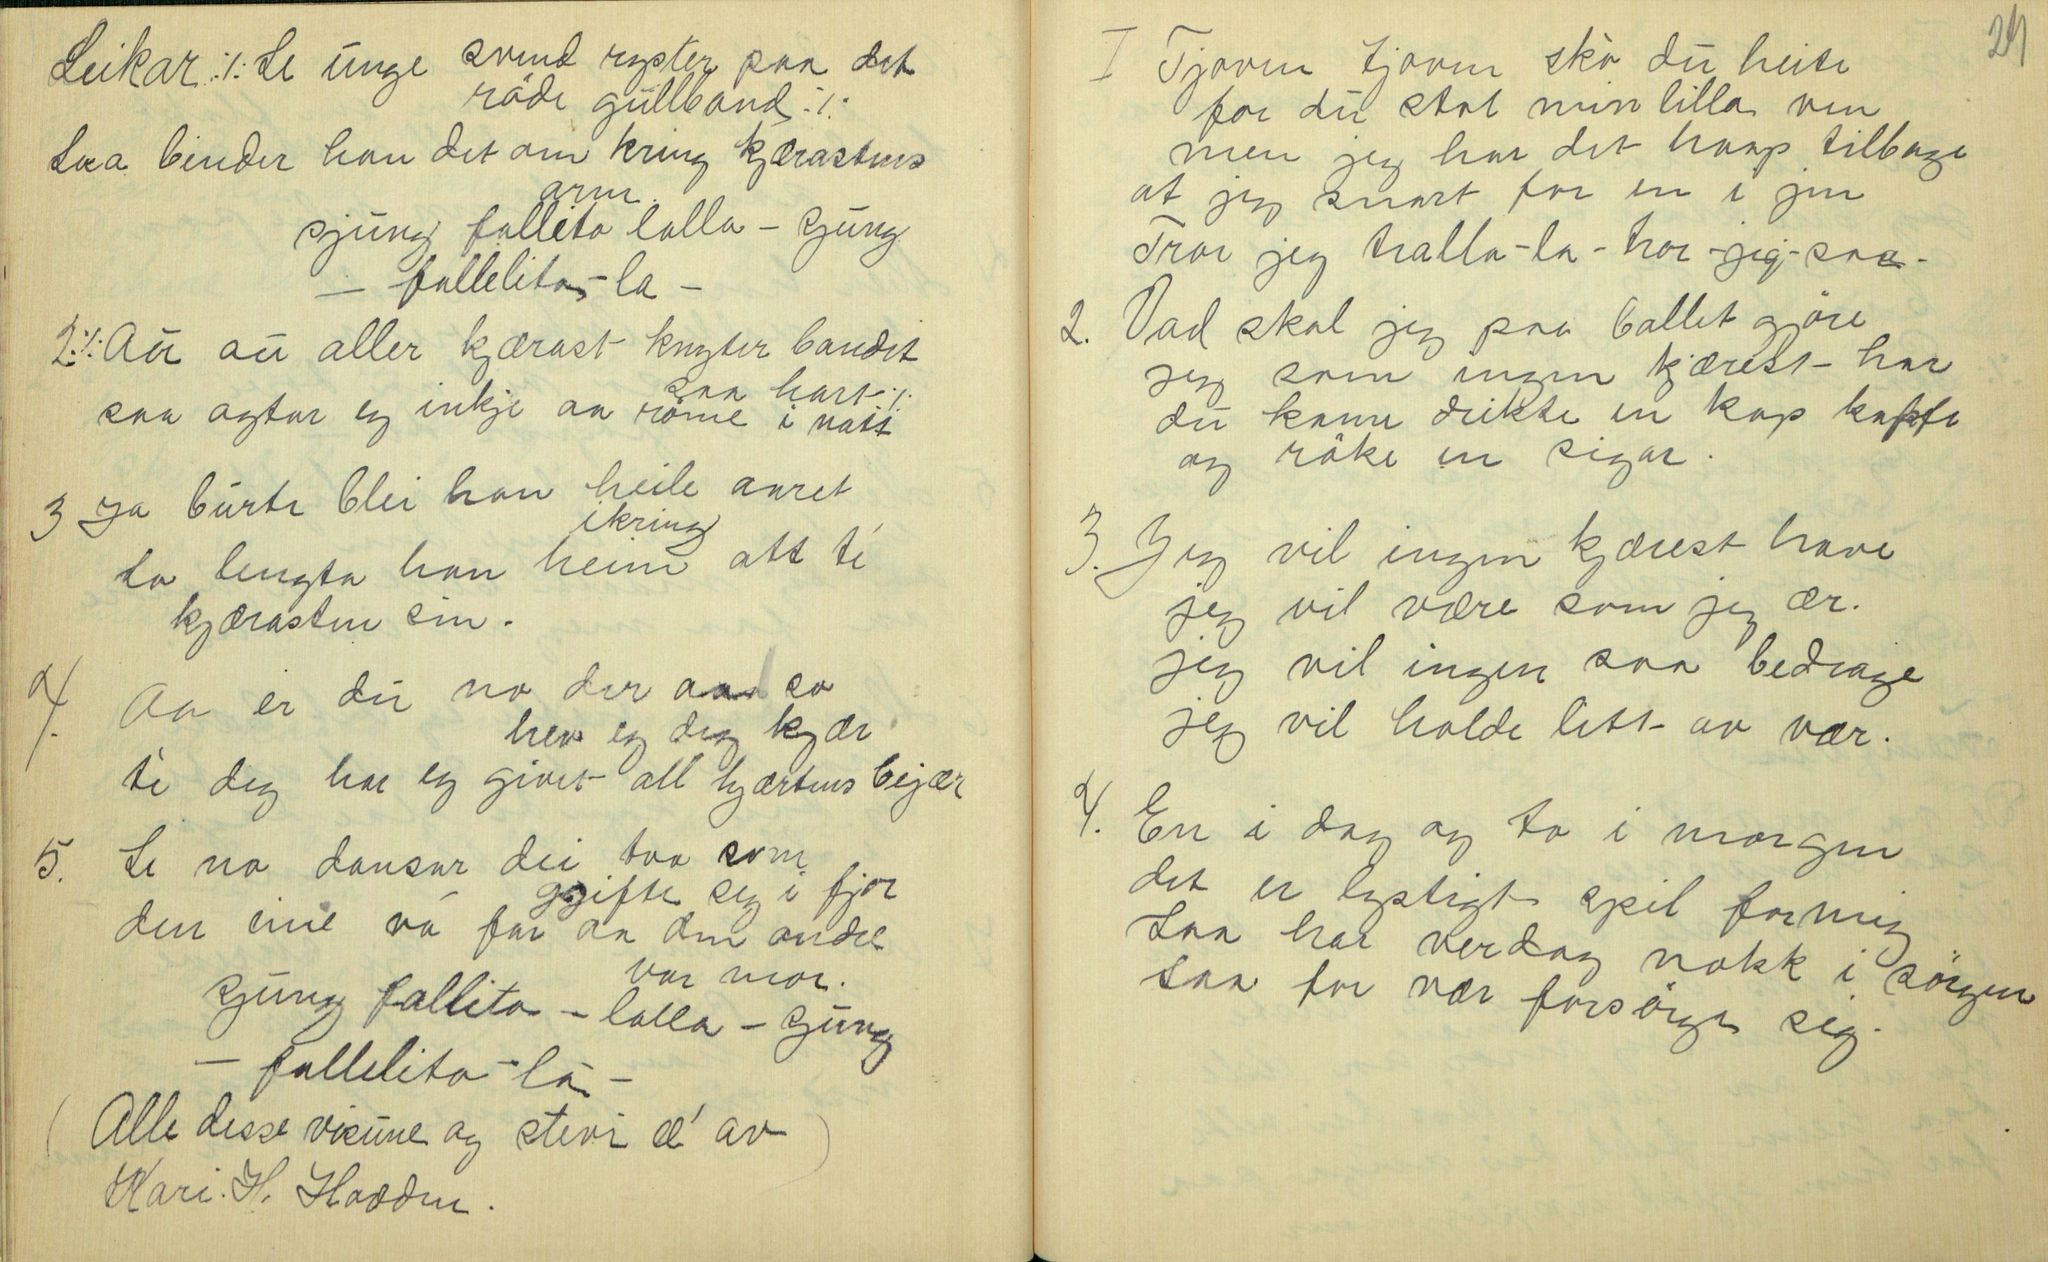 Leikar :/: Se unge svend ryster paa det
röde gullband :/:
Saa binder han det om kring kjærastens
arm.
sjung fallita lalla – sjung
– fallelita – la –
2. :/: Au au aller kjærast knyter bandet
saa hart :/:
saa agtar eg inkje aa röme i natt
3 Ja burte blei han heile aaret
ikring
so lengta han heim att te'
kjærasten sin.
4. Aa er du no der so
hev eg deg kjær
te' deg har eg givet all hjærtens bejær
5. Se no dansar dei tvo som
gifte seg i fjor
den eine va far aa den andre
var mor.
sjung fallita – lalla – sjung
– fallelita – la –
(Alle desse visune og stevi æ' av)
Kari. H. Hodden.
24
I Tjoven tjoven ska du heite
for du stal min lilla ven
men jeg har det haap tilbage
at jeg snart for en i jen
Tror jeg tralla – la – tror – jeg – saa –
2. Vad skal jeg paa ballet göre
jeg som ingen kjærest har
du kann drikke en kop kaffe
og röke en sigar.
3. Jeg vil ingen kjærest have
jeg vil være som jeg ær.
jeg vil ingen saa bedrage
jeg vil holde lett av vær.
4. En i dag og to i morgen
det er lystigt spil for mig
Saa har verdag nokk i sörgen
saa for vær forsörge sig.